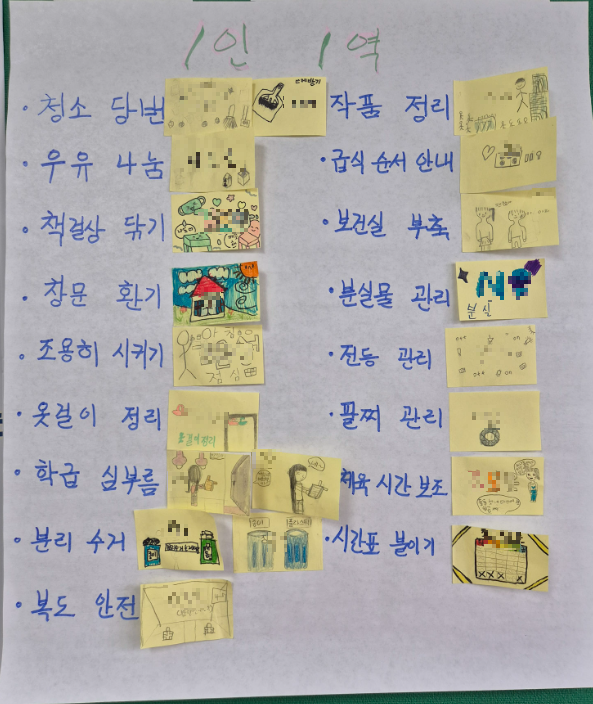 1인 1역
· 청소 당번
· 우유 나눔
· 책걸상 닦기
· 창문 환기
· 조용히 시키기
· 옷걸이 정리
· 학급 심부름
· 분리 수거
· 복도 안전
작품 정리
· 급식 순서 안내
· 보건실 부축
· 분실물 관리
분실
· 전등 관리
· 팔찌 관리
체육 시간 보조
· 시간표 붙이기